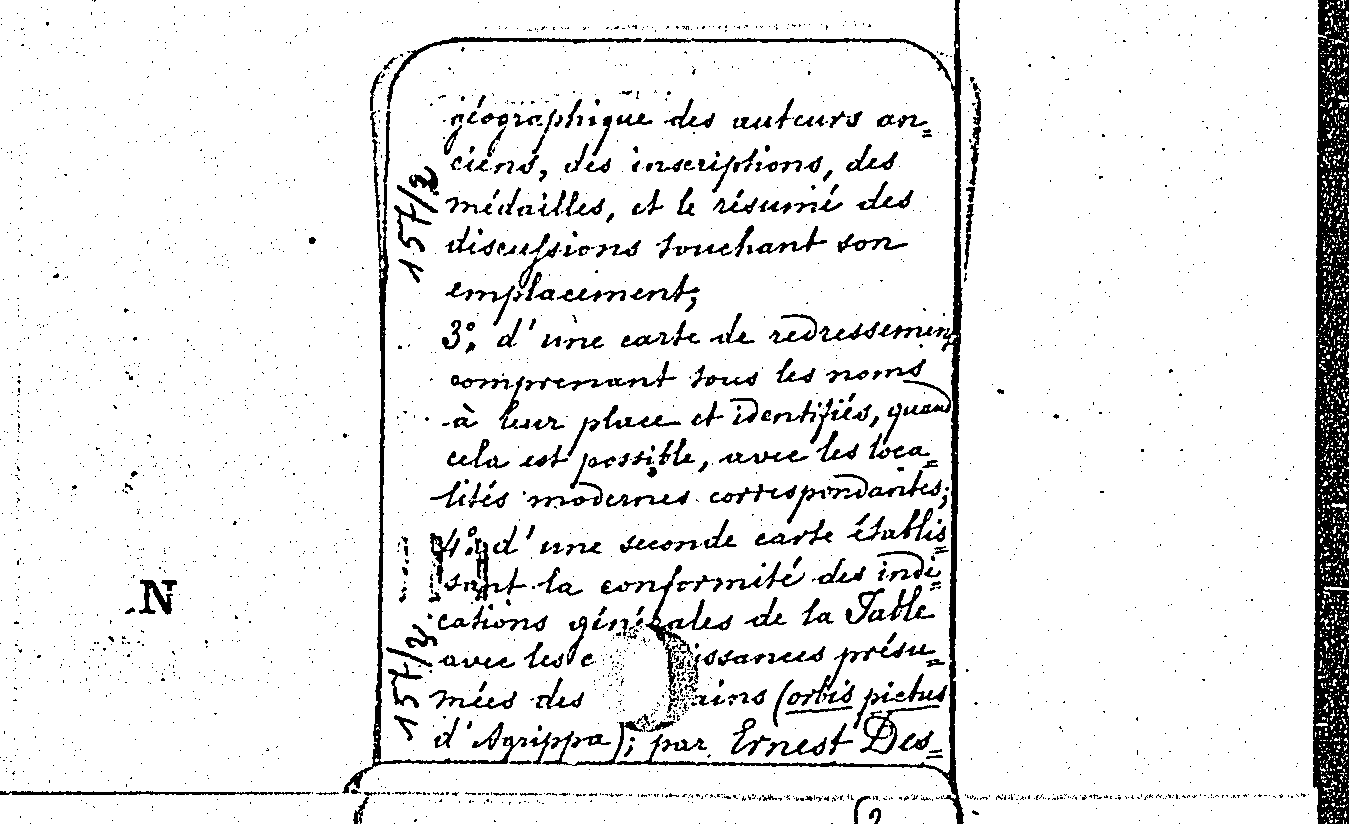 géographique des auteurs an=
ciens, des inscriptions, des
médailles, et le résumé des
discussions touchant son
emplacement;
3º, d'une carte de redressement
comprenant tous les noms
à leur place et identifiés, quand
cela est possible, avec les loca=
lités modernes correspondantes;
4º, d'une seconde carte établis=
sant la conformité des indi=
cations générales de la Table
avec les c issances présu=
mées des ains (orbis pictus
d'Agrippa); par Ernest Des=
157/2
157/2
N